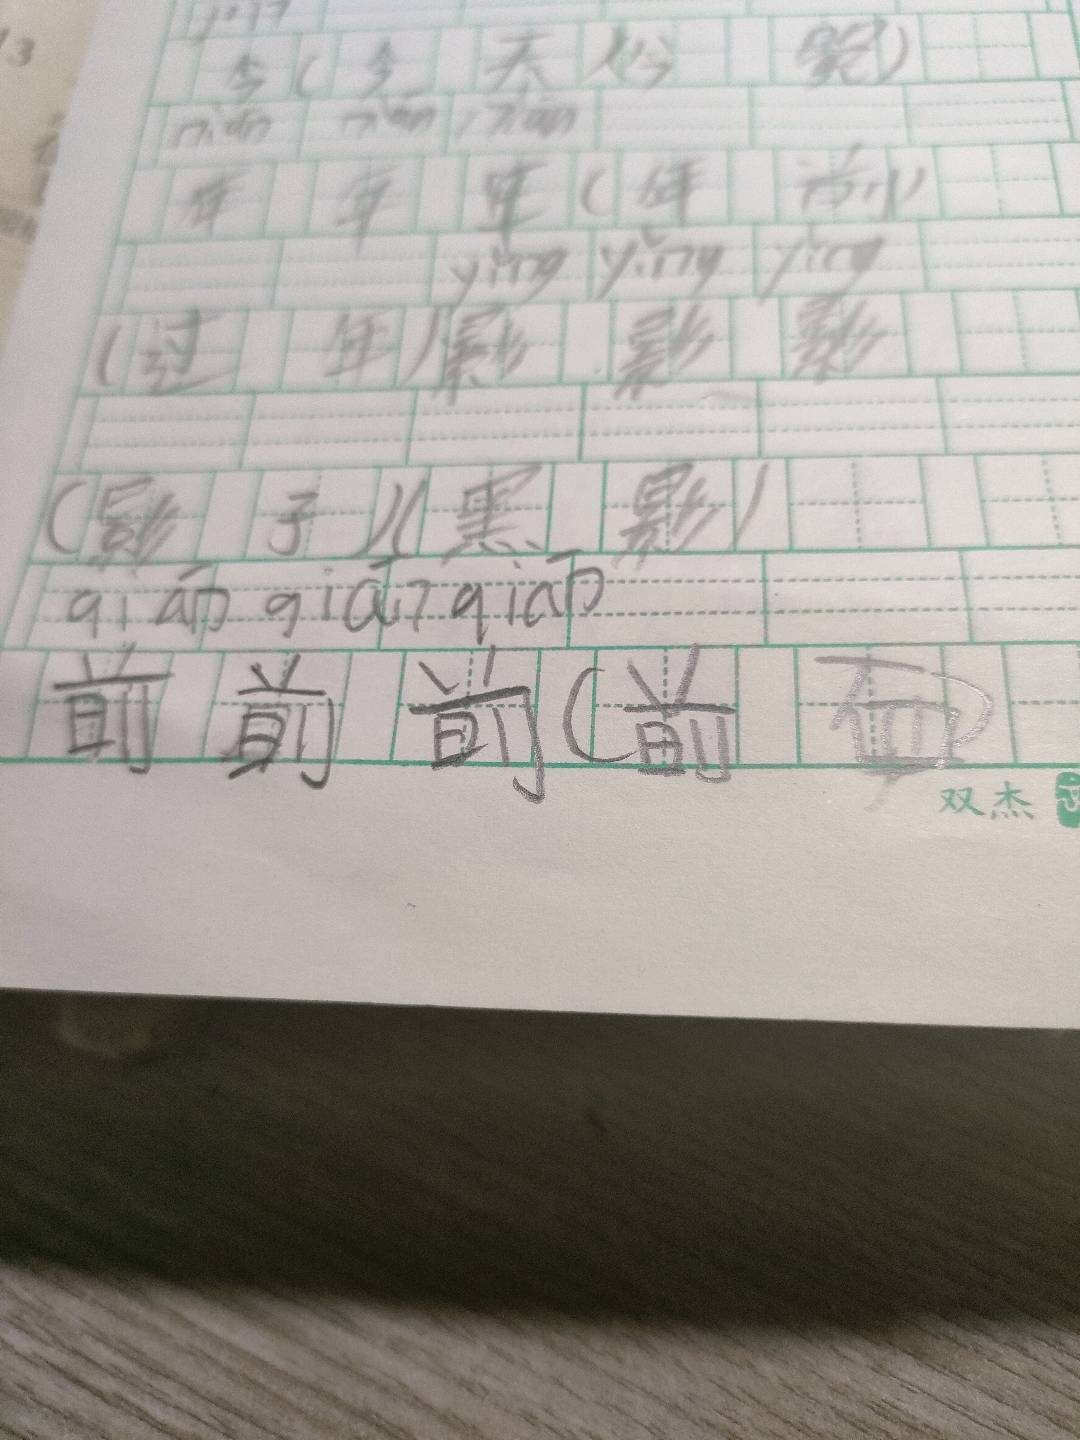 今(今天)(今晚)
nián nián nián
年年年(年前)
yǐng yǐng yǐng
(过年)影影影
(影子)(黑影)
qián qián qián
前前前(前面)
双杰